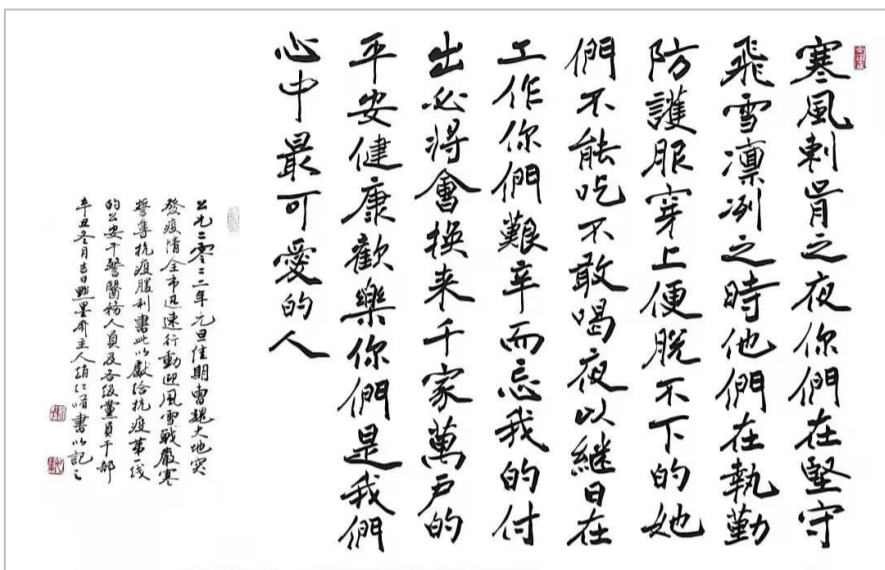 寒風刺骨之夜你們在堅守
飛雪凛冽之時他們在執勤
防護服穿上便脫不下的她
們不能吃不敢喝夜以継日在
工作你們艱辛而忘我的付
出必将會換来千家萬户的
平安健康歡樂你們是我們
心中最可愛的人
公元二零二二年元旦佳期曹魏大地突
發疫情全市迅速行動迎風雪戰嚴寒
誓奪抗疫勝利書此以獻给抗疫第一线
的公安干警醫務人員及各级黨員干部
辛丑冬月吉日墨齐主人趙書以記之